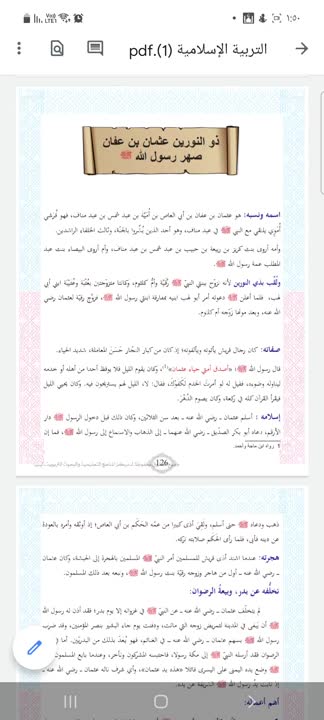 ١:٥٠
التربية الإسلامية (1).pdf
ذو النورين عثمان بن عفان
صهر رسول الله ﷺ
اسمه ونسبه: هو عثمان بن عفان بن أبي العاص بن أُمَيَّة بن عبد شمس بن عبد مناف، فهو قُرشي
أُموي يلتقي مع النبي ﷺ في عبد مناف، وهو أحد الذين بُشِّروا بالجنة، وثالث الخلفاء الراشدين.
وأمه أروى بنت كريز بن ربيعة بن حبيب بن عبد شمس بن عبد مناف، وأم أروى البيضاء بنت عبد
المطلب عمة رسول الله ﷺ.
ولُقّب بذي النورين لأنه تزوّج ببنتي النبي ﷺ رُقيَّة وأم كلثوم، وكانتا متزوجتين بعُتْبَة وعُتَيْبَة ابني أبي
لهب، فلما أعلن ﷺ دعوته أمر أبو لهب ابنيه بمفارقة ابنتي رسول الله ﷺ، فزوّج رقيَّة لعثمان رضي
الله عنه، وبعد موتها زوّجه أم كلثوم.
صفاته: كان رجال قريش يأتونه ويألفونه؛ إذ كان من كبار التجار حَسَنَ المعاملة، شديد الحياء.
قال رسول الله ﷺ: «أصدق أمتي حياء عثمان»⁽¹⁾، كان يقوم الليل فلا يوقظ أحدا من أهله أو خدمه
ليناوله وضوءه، فقيل له لو أمرت الخدم لكفوك، فقال: لا، الليل لهم يستريحون فيه. وكان يحيي الليل
فيقرأ القرآن كله في ركعة، وكان يصوم الدَّهْرَ.
إسلامه : أسلم عثمان ـ رضي الله عنه ـ بعد سن الثلاثين، وكان ذلك قبل دخول الرسول ﷺ دار
الأرقم، دعاه أبو بكر الصدّيق ـ رضي الله عنهما ـ إلى الذهاب والاستماع إلى رسول الله ﷺ، فما إن
1 رواه ابن ماجة وأحمد.
126
ذهب ودعاه ﷺ حتى أسلم، ولقيَ أذى كبيرا من عمّه الحكم بن أبي العاص؛ إذ أوثقه وأمره بالعودة
عن دينه فأبى، فلما رأى الحكم صلابته تركه.
هجرته: عندما اشتد أذى قريش للمسلمين أمر النبي ﷺ المسلمين بالهجرة إلى الحبشة، وكان عثمان
ـ رضي الله عنه ـ أول من هاجر وزوجه رقيّة بنت رسول الله ﷺ، وتبعه بعد ذلك المسلمون.
تخلُّفه عن بدر، وبيعة الرضوان:
لم يتخلّف عثمان ـ رضي الله عنه ـ عن النبي ﷺ في غزواته إلا يوم بدر؛ فقد أذن له رسول الله
ﷺ أن يبقى في المدينة لتمريض زوجه التي ماتت، ودفنت يوم جاء البشير بنصر المؤمنين، وقد ضرب
رسول الله ﷺ بسهم عثمان ـ رضي الله عنه ـ في الغنائم، فهو يُعدّ بذلك من البدريّين. أما
الرضوان فقد أرسله النبي ﷺ إلى مكة رسولا، فاحتبسه المشركون وتأخر، وعندما بايع المسلمون
وضع يده اليمنى على اليسرى قائلا «هذه يد عثمان»، وأي شرف ناله عثمان ـ رضي الله عنه ـ
إذ نابت يدُ رسول الله ﷺ الشريفة عن يده.
أهم أعماله: